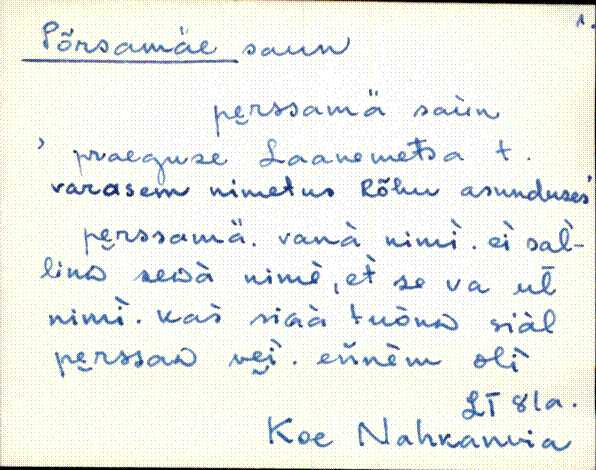 1.
Põrsamäe saun
pe̮rssamä saùn
' praeguse Laanemetsa t.
varasem nimetus Rõhu asunduses'
pe̮rssamä. vanà nimì. eì sal̀-
linᴅ seᴅà nimè, et̀ se va ut̄
nimì. kas̀ siɢà tuònᴅ siàl
pe̮rssaᴅ ve̮ì. eǹnèm olì
LT 81a.
Koe Nahkanuia